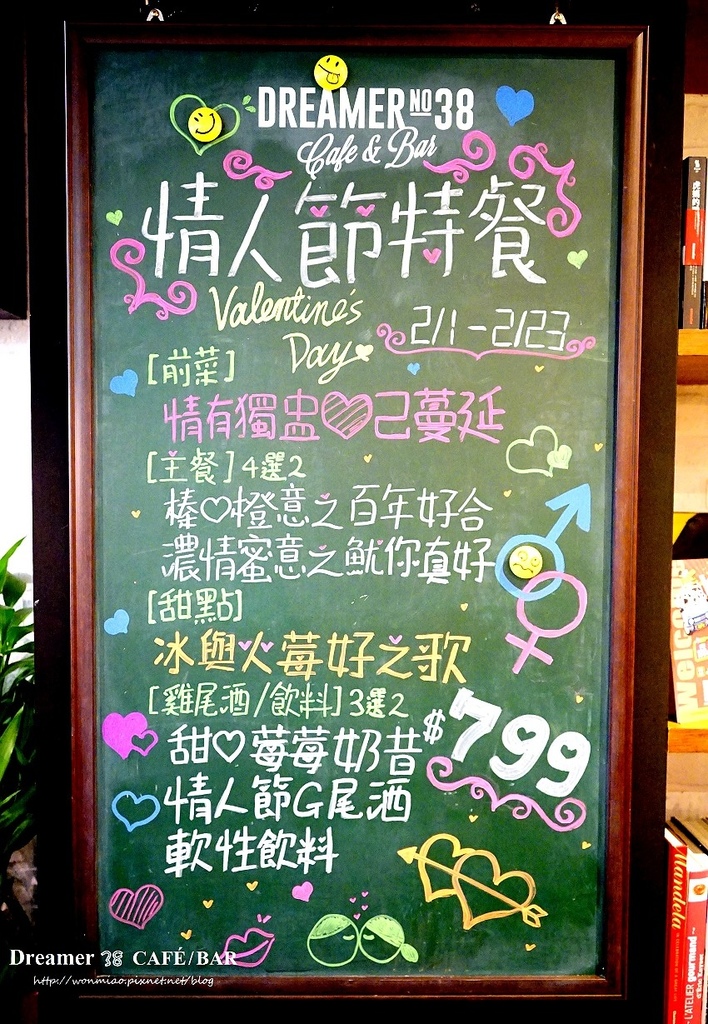 DREAMER NO 38
Cafe & Bar
情人節特餐
Valentine's
Day
2/1-2/23
[前菜]
情有獨盅♡己蔓延
[主餐]4選2
棒♡橙意之百年好合
濃情蜜意之魷你真好
[甜點]
冰與火莓好之歌
[雞尾酒/飲料]3選2
甜♡莓莓奶昔
情人節G尾酒
軟性飲料
$799
Welcome
Mandela
L'ATELIER gourmand
Dreamer 38 CAFÉ/BAR
http://wonmiao.pixnet.net/blog